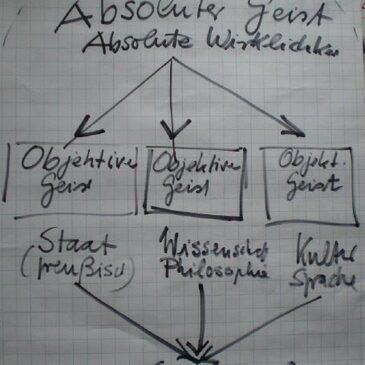 Absoluter Geist
Absolute Wirklichkei
Objektive
Geist
Objektive
Geist
Objekt.
Geist
Staat
(preußisch)
Wissenschaft
Philosophie
Kultur
Sprache